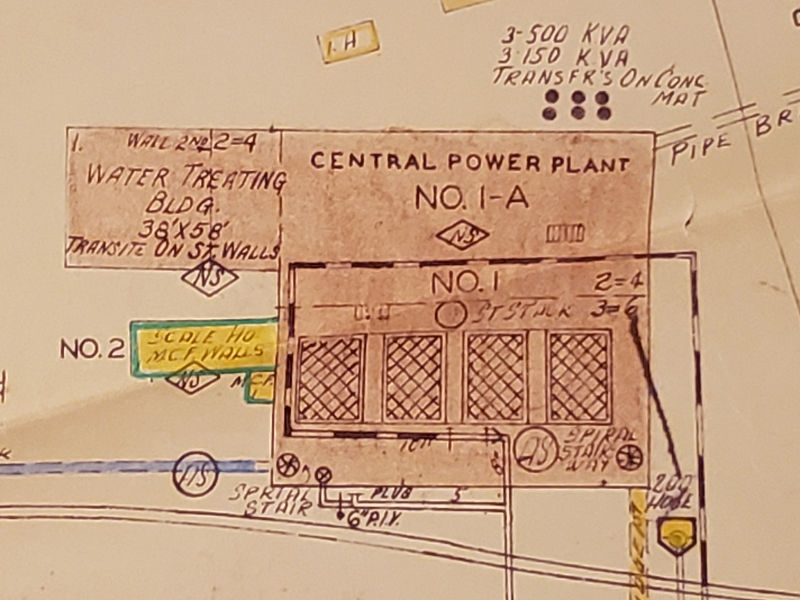 I. H
3-500 KVA
3-150 KVA
TRANSFR'S ON CONC.
MAT
PIPE BR
1. WALL 2ND 2=4
WATER TREATING
BLDG.
38'X58'
TRANSITE ON ST. WALLS
NS
CENTRAL POWER PLANT
NO. 1-A
NS
NO. 1
2=4
3=6
ST STACK
NO. 2
SCALE HO
MCF. WALLS
NS
MCF.
AS
SPIRAL
STAIR
WAY
10"
8"
AS
SPRIAL
STAIR
PLUG
5
6" P.I.V.
200
HOSE